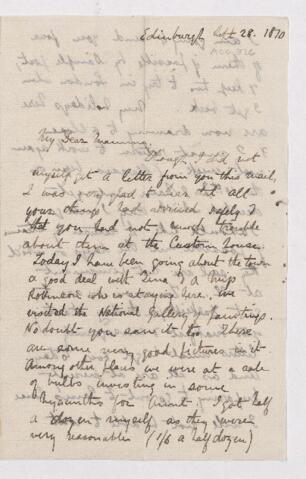 Edinburgh Sept 28. 1870
My Dear Mamma,
Though I did not
myself get a letter from you this mail,
I was very glad to hear that all
your things had arrived safely &
that you had not much trouble
about them at the Custom house.
Today I have been going about the town
a good deal with Lina & a Miss
Robinson who is staying here. We
visited the National Gallery of paintings.
No doubt you saw it too. There
are some very good pictures in it.
Among other places we were at a sale
of bulbs investing in some
Hyacinths for Aunt. I got half
a dozen myself as they were
very reasonable (1/6 a half dozen)